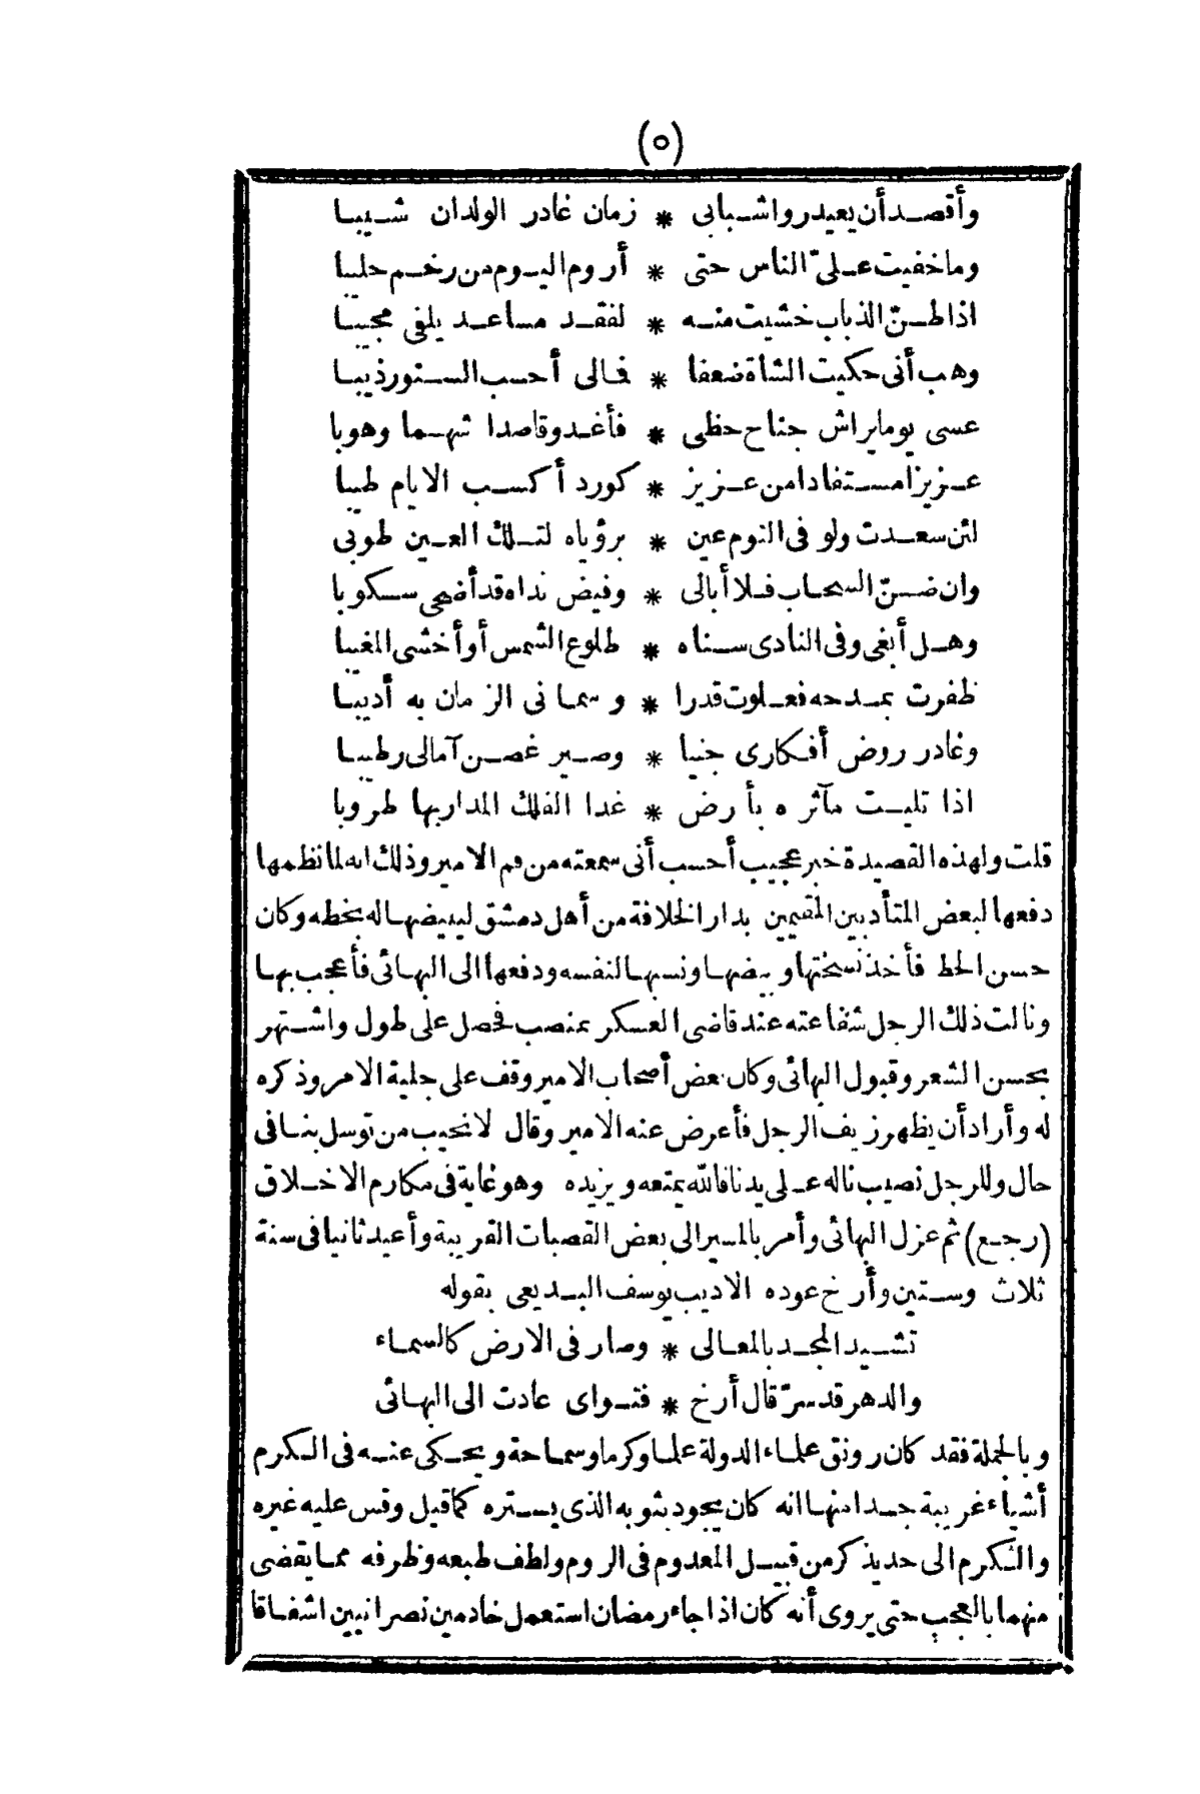 (٥)
وأقصد أن يعيد رواشبابى * زمان غادر الولدان شيبا
وما خفيت علىّ الناس حتى * أروم اليوم من رخم حليبا
اذا طنّ الذباب خشيت منه * لفقد مساعد يلفى مجيبا
وهب أنى حكيت الشاة ضعفا * فمالى أحسب السنور ذيبا
عسى يوما يراش جناح حظى * فأغدو قاصدا شهما وهوبا
عزيزا مستفادا من عزيز * كورد أكسب الايام طيبا
لئن سعدت ولو فى النوم عين * برؤياه لتلك العين طوبى
وان ضنّ السحاب فلا أبالى * وفيض نداه قد أضحى سكوبا
وهل أبغى وفى النادى سناه * طلوع الشمس أو أخشى المغيبا
ظفرت بمدحه فعلوت قدرا * وسمانى الزمان به أديبا
وغادر روض أفكارى جنيا * وصير غصن آمالى رطيبا
اذا تليت مآثره بأرض * غدا الفلك المدار بها طروبا
قلت ولهذه القصيدة خبر عجيب أحسب أنى سمعته من فم الامير وذلك انه لما نظمها
دفعها لبعض المتأدبين المقيمين بدار الخلافة من أهل دمشق ليبيضها له بخطه وكان
حسن الخط فأخذ نسختها وبيضها ونسبها لنفسه ودفعها الى البهائى فأعجب بها
ونالت ذلك الرجل شفاعته عند قاضى العسكر بمنصب فحصل على طول واشتهر
بحسن الشعر وقبول البهائى وكان بعض أصحاب الامير وقف على جلية الامر وذكره
له وأراد أن يظهر زيف الرجل فأعرض عنه الامير وقال لا نخيب من توسل بنا فى
حال وللرجل نصيب ناله على يدنا فالله يمتعه ويزيده وهو غاية فى مكارم الاخلاق
(رجع) ثم عزل البهائى وأمر بالمسير الى بعض القصبات القريبة وأعيد ثانيا فى سنة
ثلاث وستين وأرخ عوده الاديب يوسف البديعى بقوله
تشيد المجد بالمعالى * وصار فى الارض كالسماء
والدهر قد سرّ قال أرخ * فتواى عادت الى البهائى
وبالجملة فقد كان رونق علماء الدولة علما وكرما وسماحة ويحكى عنه فى الكرم
أشياء غريبة جدا منها انه كان يجود بثوبه الذى يستره كما قيل وقس عليه غيره
والكرم الى حد يذكر من قبيل المعدوم فى الروم ولطف طبعه وظرفه مما يقضى
منهما بالعجب حتى يروى أنه كان اذا جاء رمضان استعمل خادمين نصرانيين اشفاقا